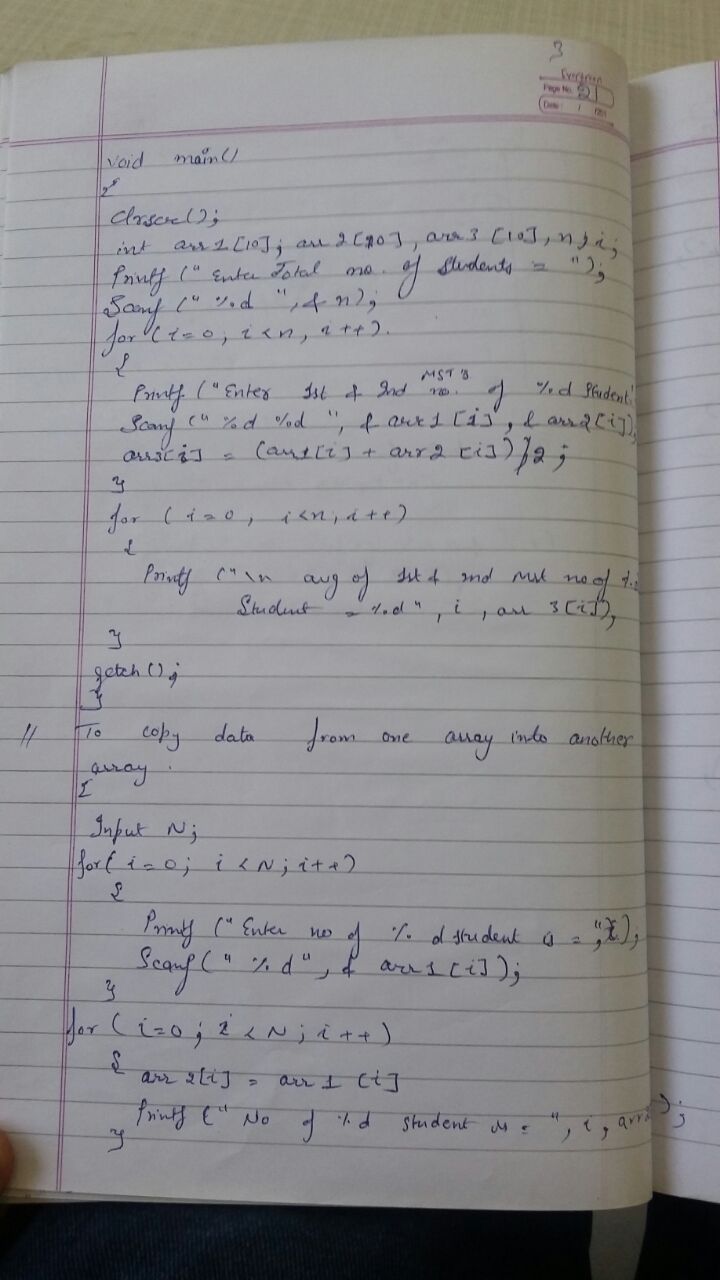 3
Evergreen
Page No. 21
Date: / /201
void main()
{
clrscr();
int arr 1 [10]; arr 2[10], arr 3 [10], n, i;
Printf (" Enter Total no. of Students = ");
Scanf (" %d ", & n);
for (i=0, i<n, i++).
{
Printf ("Enter 1st & 2nd MST's no. of %d Student"
Scanf (" %d %d ", & arr 1 [i], & arr2[i]),
arr3[i] = (arr1[i] + arr 2 [i]) / 2 ;
}
for (i=0, i<n, i++)
{
Printf ("\n avg of 1st & 2nd Mst no of %d
Student = %d", i, arr 3[i]),
}
getch();
}
// To copy data from one array into another
array.
{
Input N;
for(i=0; i<N; i++)
{
Printf (" Enter no of % d student is = ", i);
Scanf (" %d", & arr 1 [i]);
}
for (i=0; i<N; i++)
{
arr 2[i] = arr 1 [i]
Printf (" No of %d student is = ", i, arr2 );
}